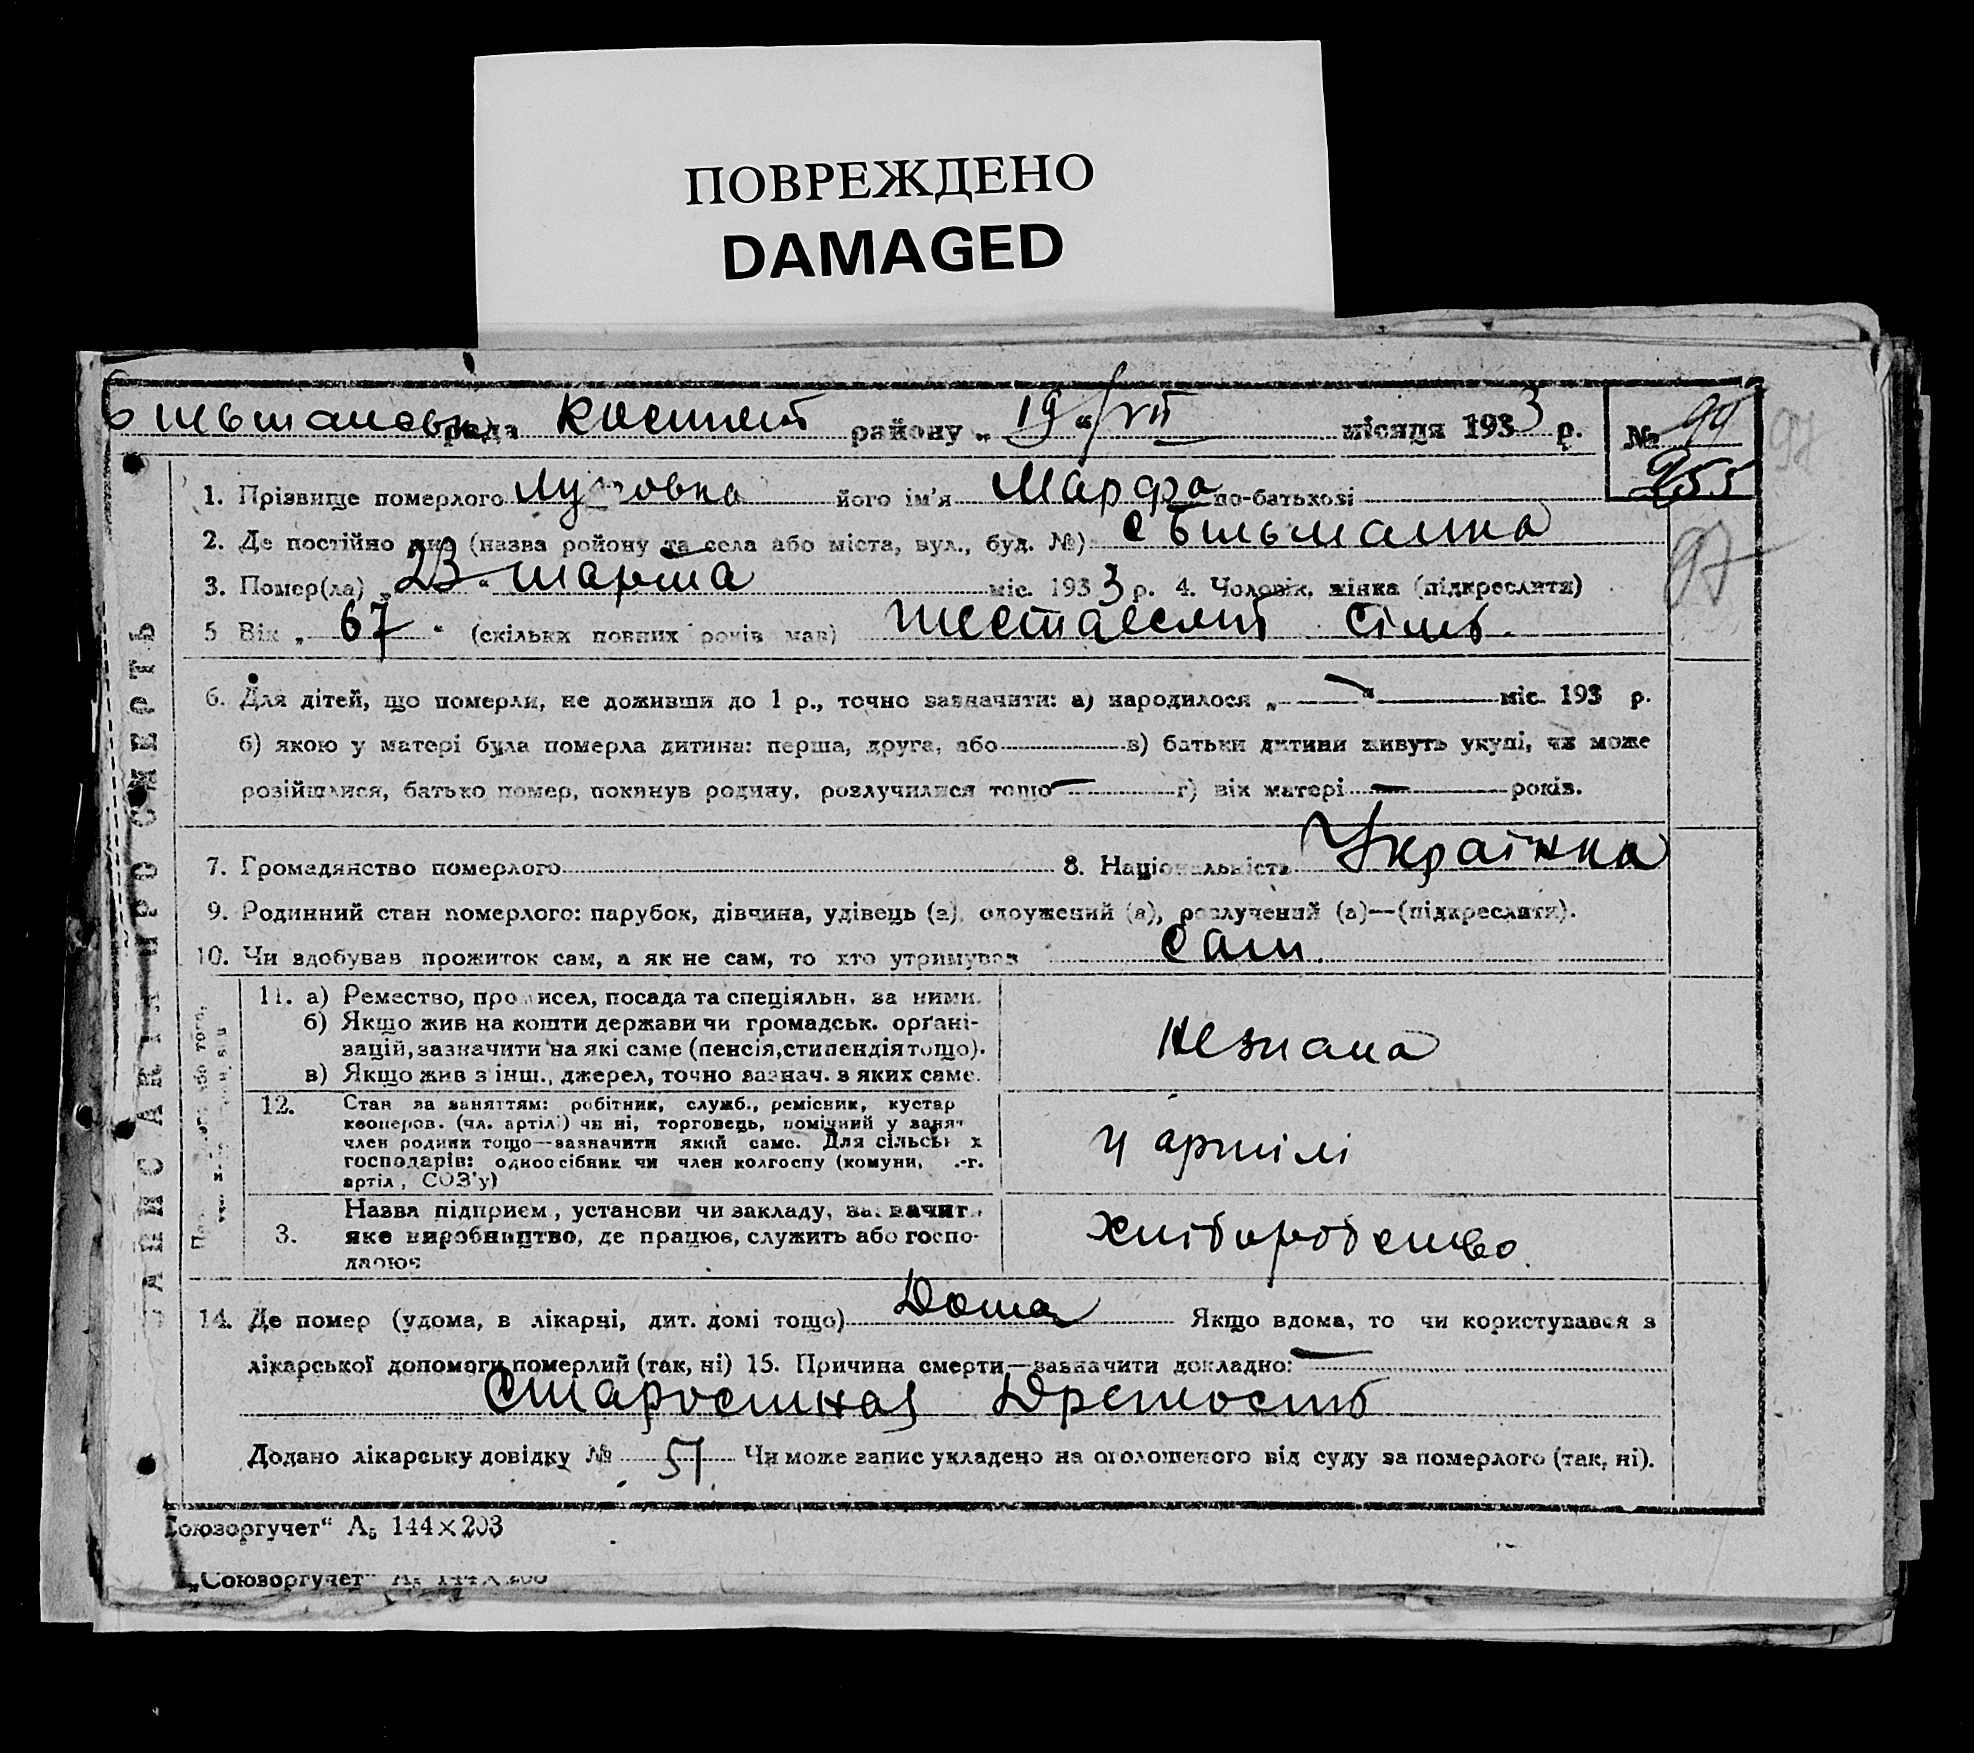 ПОВРЕЖДЕНО
DAMAGED
рада району „ 19 “ VII місяця 1933 р. № 94
255
97
1. Прізвище померлого його ім'я Марфа по-батькові
2. Де постійно жив (назва району та села або міста, вул., буд. №) с Більманка
97
3. Помер(ла) „ 23 “ марта міс. 1933 р. 4. Чоловік, жінка (підкреслити)
5 Вік „ 67 “ (скільки повних років мав) шестдесят сімь.
6. Для дітей, що померли, не доживши до 1 р., точно зазначити: а) народилося „ — “ міс. 193 р.
б) якою у матері була померла дитина: перша, друга, або в) батьки дитини живуть укупі, чи може
розійшлися, батько помер, покинув родину, розлучилися тощо — г) вік матері — років.
7. Громадянство померлого 8. Національність Українка
9. Родинний стан померлого: парубок, дівчина, удівець (а), одружений (а), розлучений (а)—(підкреслити).
10. Чи здобував прожиток сам, а як не сам, то хто утримував сам.
ЗАПИС АКТІВ ПРО СМЕРТЬ
11. а) Ремество, промисел, посада та спеціяльн. за ними.
б) Якщо жив на кошти держави чи громадськ. органі-
зацій, зазначити на які саме (пенсія, стипендія тощо).
в) Якщо жив з інш., джерел, точно зазнач. з яких саме.
Незнана
12. Стан за заняттям: робітник, служб., ремісник, кустар
кооперов. (чл. артілі) чи ні, торговець, помічний у занят
член родини тощо—зазначити який саме. Для сільськ х
господарів: одноосібник чи член колгоспу (комуни, .-г.
артіл, СОЗ'у)
У артілі
3. Назва підприєм, установи чи закладу, зазначит.
яке виробництво, де працює, служить або госпо-
дарює
хліборобство
14. Де помер (удома, в лікарні, дит. домі тощо) Дома Якщо вдома, то чи користувався з
лікарської допомоги померлий (так, ні) 15. Причина смерти—зазначити докладно: —
Старостная
Додано лікарську довідку № 57 Чи може запис укладено на оголошеного від суду за померлого (так, ні).
Союзоргучет“ А₅ 144×203
„Союзоргучет“ А₅ 144×203